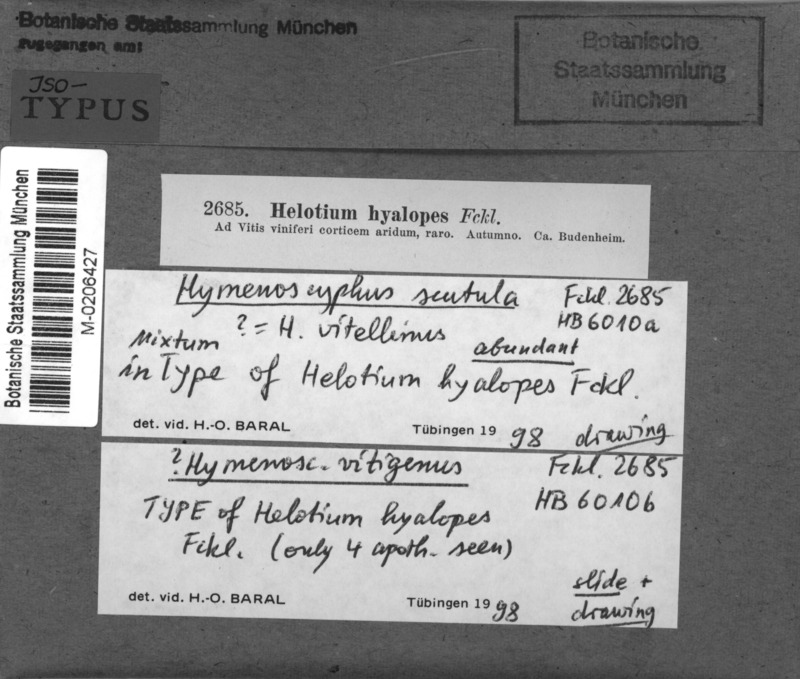 Botanische Staatssammlung München
zugegangen am:
ISO-
TYPUS
Botanische
Staatssammlung
München
Botanische Staatssammlung München
M-0206427
2685. Helotium hyalopes Fckl.
Ad Vitis viniferi corticem aridum, raro. Autumno. Ca. Budenheim.
Hymenoscyphus scutula Fckl. 2685
HB 6010a
? = H. vitellinus
Mixtum abundant
in Type of Helotium hyalopes Fckl.
det. vid. H.-O. BARAL Tübingen 19 98 drawing
? Hymenosc. vitigenus Fckl. 2685
HB 6010b
TYPE of Helotium hyalopes
Fckl. (only 4 apoth. seen)
slide +
det. vid. H.-O. BARAL Tübingen 19 98 drawing